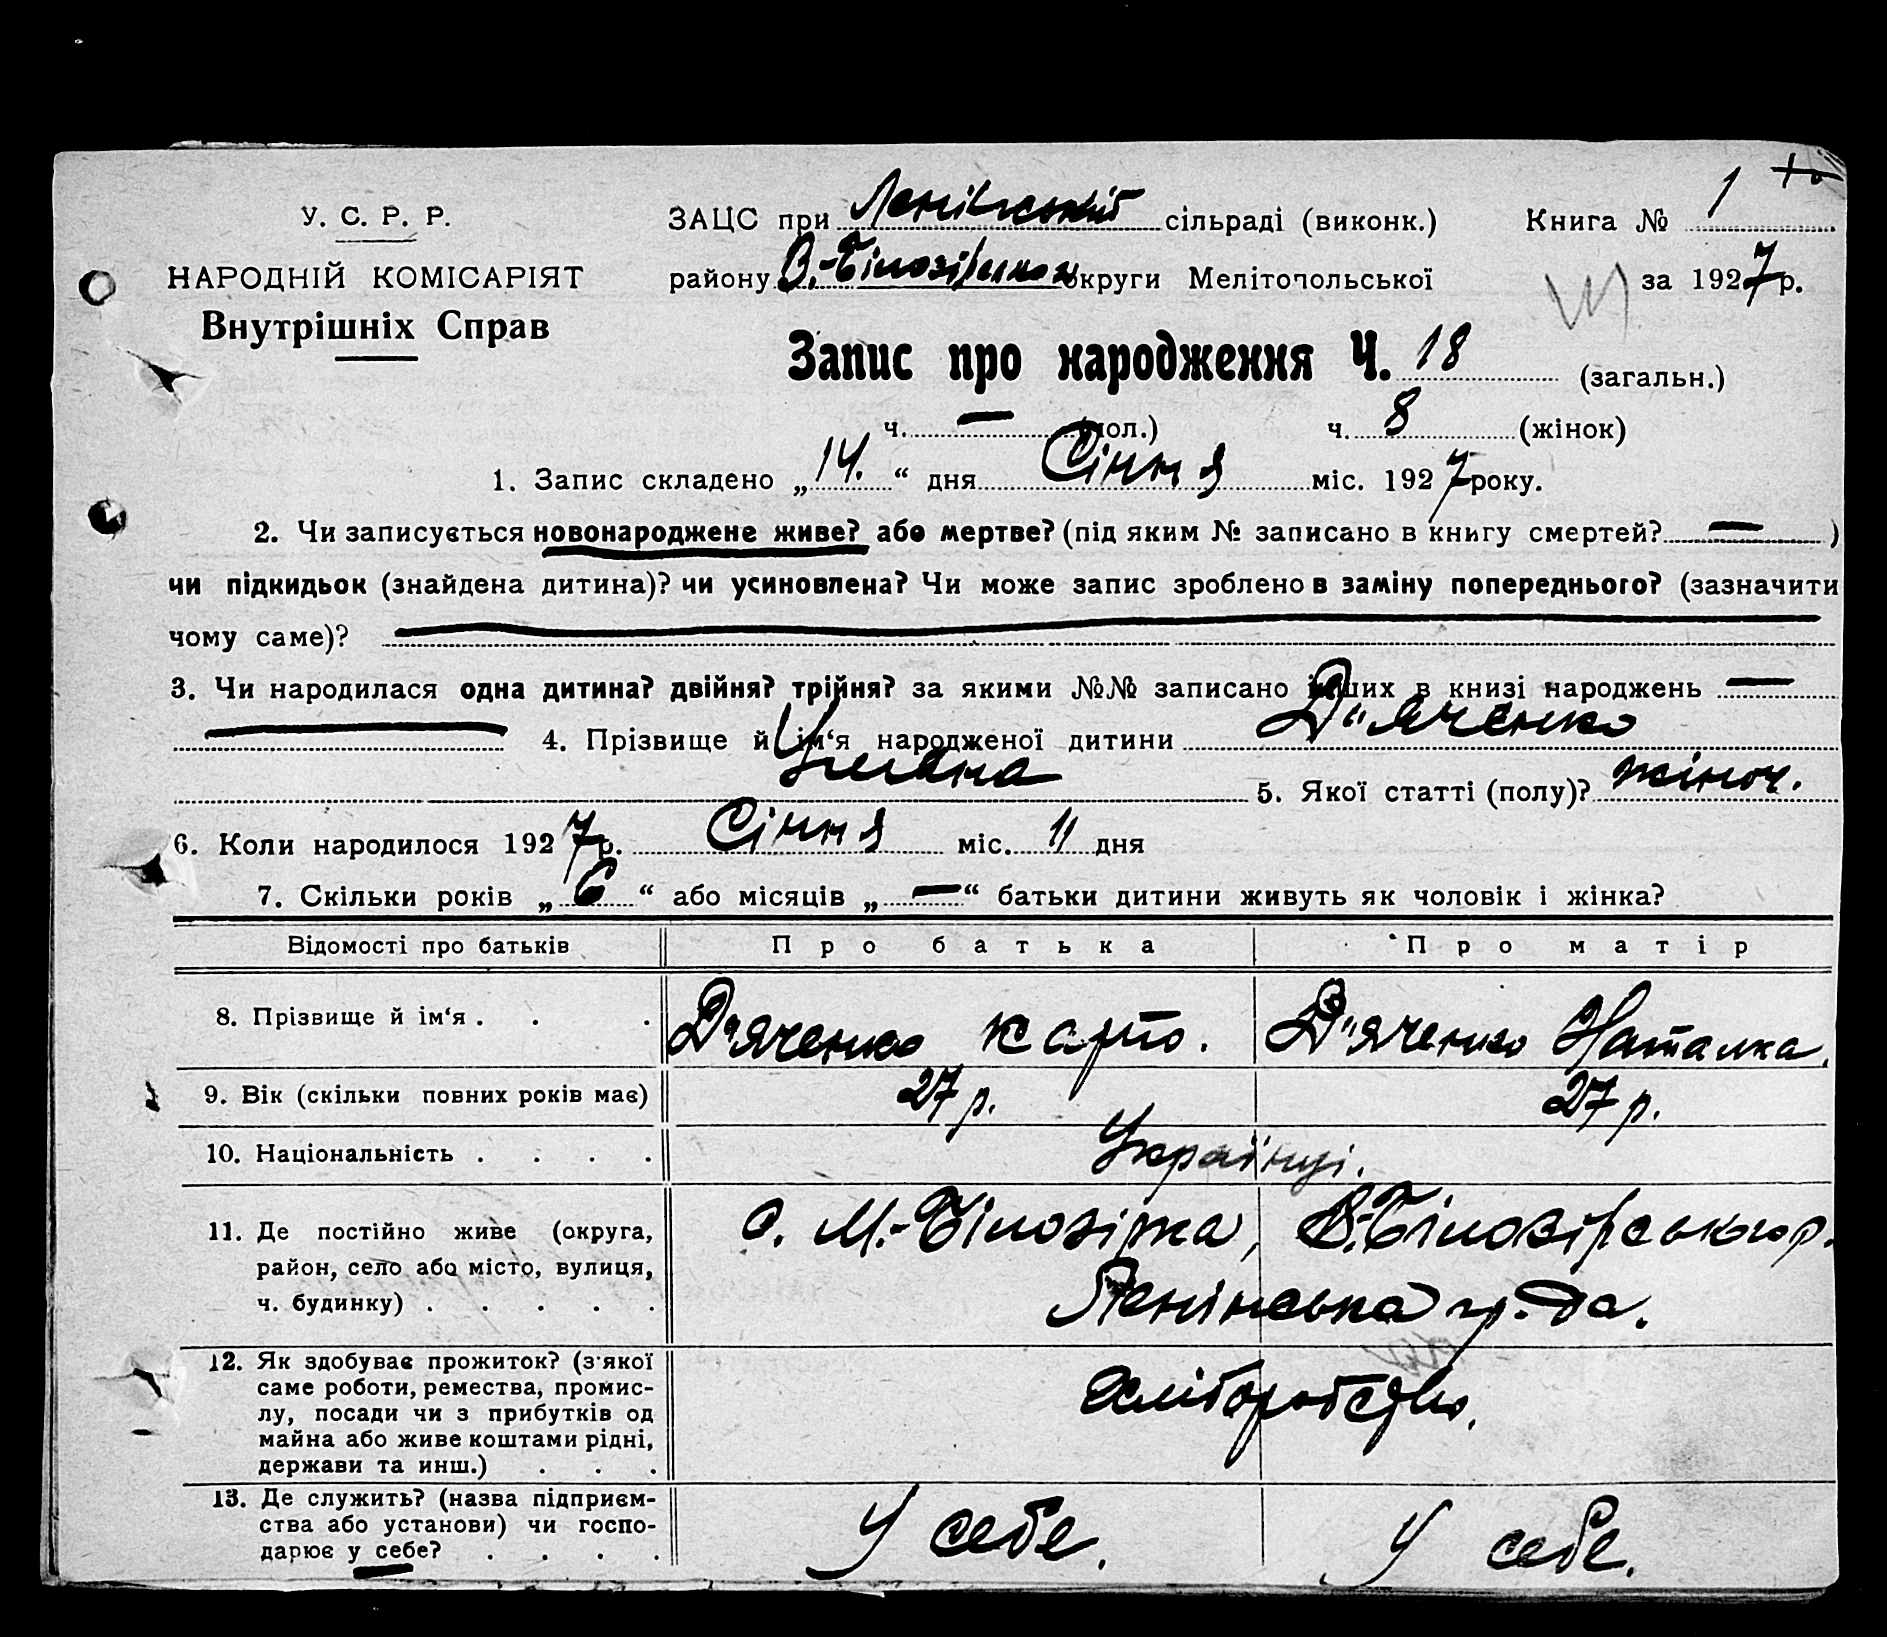 У. С. Р. Р.
НАРОДНІЙ КОМІСАРІЯТ
Внутрішніх Справ
ЗАЦС при Ленінській сільраді (виконк.)
району В.-Білозірськ округи Мелітопольської
Книга № 1
за 1927 р.
Запис про народження Ч. 18 (загальн.)
ч. — (чол.) ч. 8 (жінок)
1. Запис складено „ 14. “ дня Січня міс. 1927 року.
2. Чи записується новонароджене живе? або мертве? (під яким № записано в книгу смертей? — )
чи підкидьок (знайдена дитина)? чи усиновлена? Чи може запис зроблено в заміну попереднього? (зазначити
чому саме)? —
3. Чи народилася одна дитина? двійня? трійня? за якими №№ записано інших в книзі народжень —
— 4. Прізвище й ім‘я народженої дитини Д"яченко
Уляна 5. Якої статті (полу)? жіноч.
6. Коли народилося 1927 р. Січня міс. 11 дня
7. Скільки років „ 6 “ або місяців „ — “ батьки дитини живуть як чоловік і жінка?
Відомості про батьків Про батька Про матір
8. Прізвище й ім‘я . . . Д"яченко Карпо. Д"яченко Наталка.
9. Вік (скільки повних років має) 27 р. 27 р.
10. Національність . . . . Українці.
11. Де постійно живе (округа,
район, село або місто, вулиця,
ч. будинку) . . . . .
с. М.-Білозірка, В.-Білозірського р.
Ленінська гр-да.
12. Як здобуває прожиток? (з'якої
саме роботи, ремества, промис-
лу, посади чи з прибутків од
майна або живе коштами рідні,
держави та инш.) . . .
Хліборобство.
13. Де служить? (назва підприєм-
ства або установи) чи госпо-
дарює у себе? . . . .
У себе. У себе.